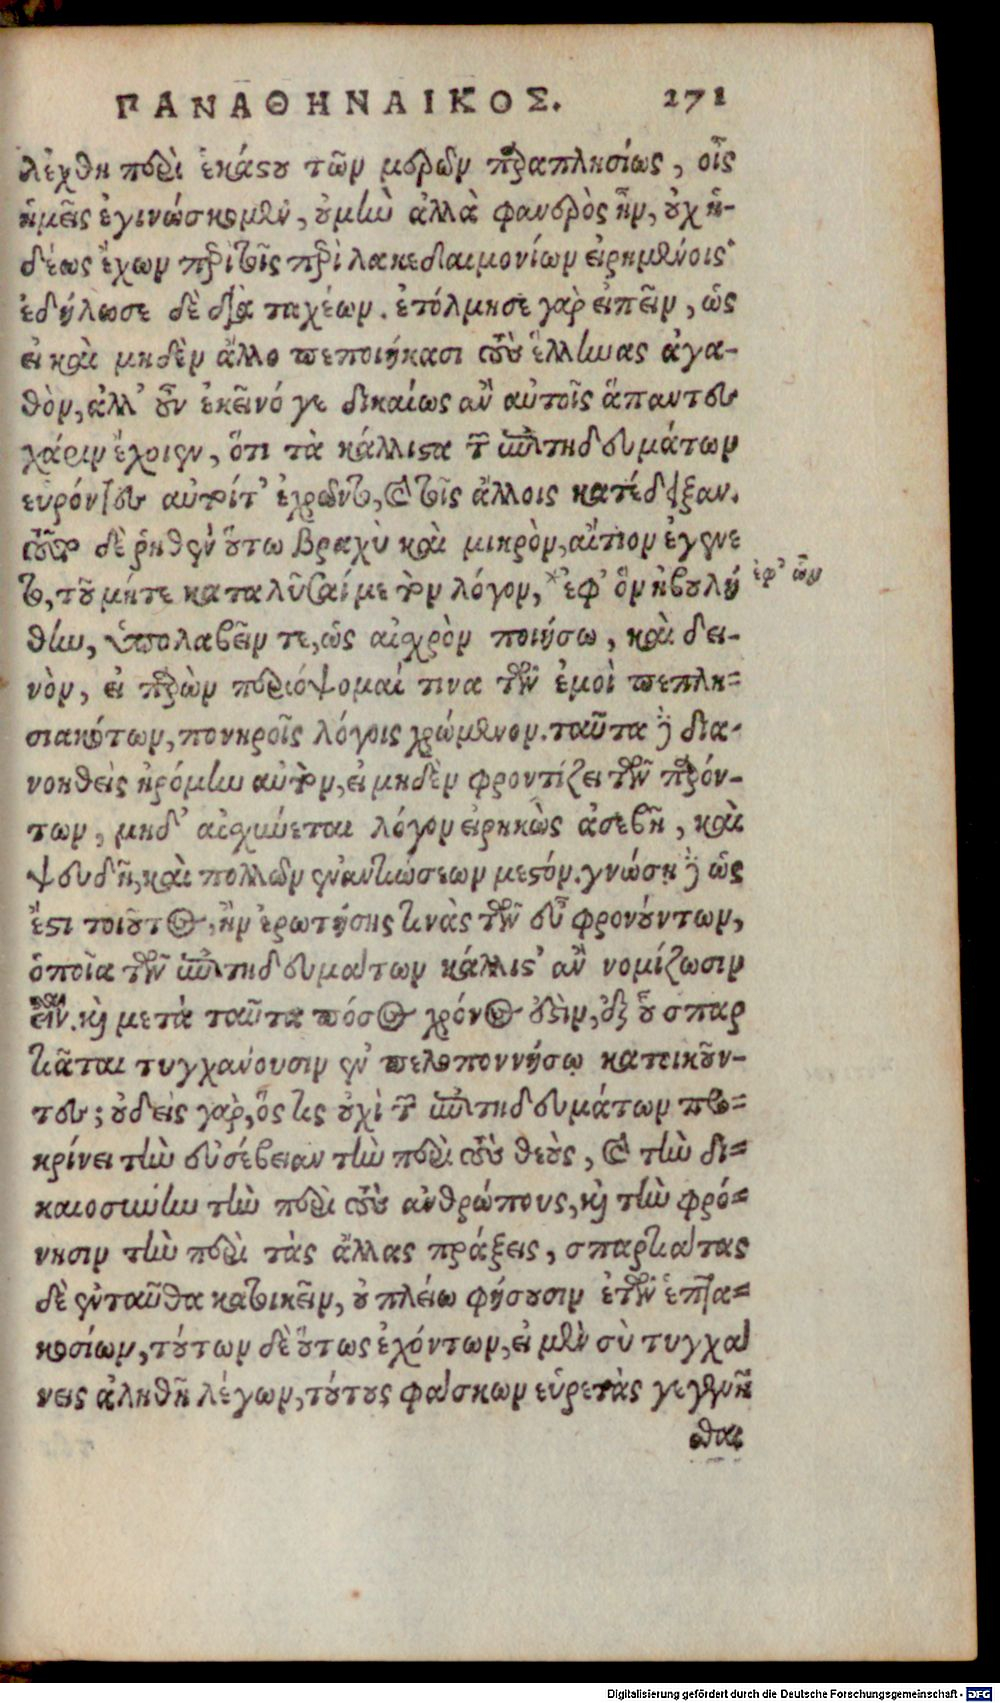 ΠΑΝΑΘΗΝΑΙΚΟΣ. 271
λέχθη περὶ ἑκάστου τῶν μερῶν παραπλησίως, οἷς
ἡμεῖς ἐγινώσκομεν, οὐ μὴν ἀλλὰ φανερὸς ἦν, οὐχ ἡ-
δέως ἔχων περὶ τοῖς περὶ λακεδαιμονίων εἰρημένοις·
ἐδήλωσε δὲ διὰ ταχέων. ἐτόλμησε γὰρ εἰπεῖν, ὡς
εἰ καὶ μηδὲν ἄλλο πεποιήκασι τοὺς ἕλληνας ἀγα-
θὸν, ἀλλ' οὖν ἐκεῖνό γε δικαίως ἂν αὐτοῖς ἅπαντες
χάριν ἔχοιεν, ὅτι τὰ κάλλιστα τῶν ἐπιτηδευμάτων
εὑρόντες αὐτοί τ' ἐχρῶντο, καὶ τοῖς ἄλλοις κατέδειξαν.
τοῦτο δὲ ῥηθὲν οὕτω βραχὺ καὶ μικρὸν, αἴτιον ἐγένε
το, τοῦ μήτε καταλῦσαί με τὸν λόγον, *ἐφ' ὃν ἠβουλή
ἐφ' ὧν
θην, ὑπολαβεῖν τε, ὡς αἰσχρὸν ποιήσω, καὶ δει-
νὸν, εἰ παρὼν περιόψομαί τινα τῶν ἐμοὶ πεπλη-
σιακότων, πονηροῖς λόγοις χρώμενον. ταῦτα δὲ δια-
νοηθεὶς ἠρόμην αὐτὸν, εἰ μηδὲν φροντίζει τῶν παρόν-
των, μηδ' αἰσχύνεται λόγον εἰρηκὼς ἀσεβῆ, καὶ
ψευδῆ, καὶ πολλῶν ἐναντιώσεων μεστόν. γνώσῃ δὲ ὡς
ἔστι τοιοῦτος, ἢν ἐρωτήσῃς τινὰς τῶν εὖ φρονούντων,
ὁποῖα τῶν ἐπιτηδευμάτων κάλλιστ' ἂν νομίζωσιν
εἶναι. καὶ μετὰ ταῦτα πόσος χρόνος ἐστὶν, ἐξ οὗ σπαρ
τιᾶται τυγχάνουσιν ἐν πελοποννήσῳ κατοικοῦν-
τες; οὐδεὶς γὰρ, ὅς τις οὐχὶ τῶν ἐπιτηδευμάτων προ-
κρίνει τὴν εὐσέβειαν τὴν περὶ τοὺς θεοὺς, καὶ τὴν δι-
καιοσύνην τὴν περὶ τοὺς ἀνθρώπους, καὶ τὴν φρό-
νησιν τὴν περὶ τὰς ἄλλας πράξεις, σπαρτιάτας
δὲ ἐνταῦθα κατοικεῖν, οὐ πλείω φήσουσιν ἐτῶν ἑπτα-
κοσίων, τούτων δὲ οὕτως ἐχόντων, εἰ μὲν σὺ τυγχά
νεις ἀληθῆ λέγων, τούτους φάσκων εὑρετὰς γεγενῆ
σθαι
Digitalisierung gefördert durch die Deutsche Forschungsgemeinschaft - DFG